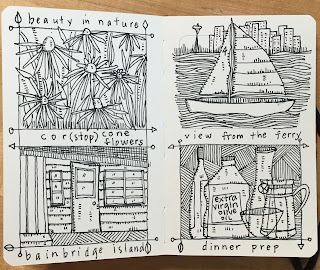 beauty in nature
cor(stop) cone
flowers
bainbridge island
view from the ferry
extra
virgin
olive
oil
dinner prep